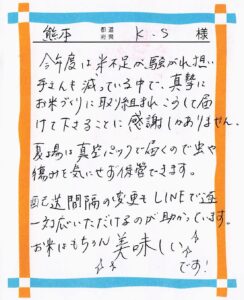 熊本 都道府県 K・S 様
今年度は米不足が騒がれ、担い
手さんも減っている中で、真摯に
お米づくりに取り組まれ、こうして届
けて下さることに感謝しかありません。
夏場は真空パックで届くので虫や
傷みを気にせず保管できます。
配送間隔の変更もLINEで逐
一対応いただけるのが助かっています。
お米はもちろん美味しい
です！